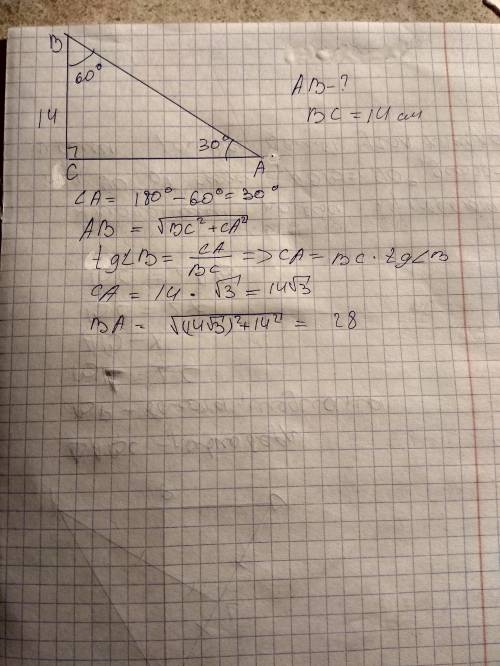 B
60°
AB - ?
BC = 14 см
14
30°
C
A
∠A = 180° - 60° = 30°
AB = √BC² + CA²
tg∠B = CA/BC => CA = BC · tg∠B
CA = 14 · √3 = 14√3
BA = √(14√3)² + 14² = 28